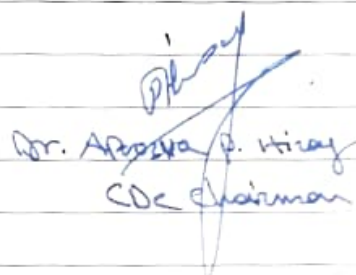 Dr. Apoorva P. Hiray
CDC Chairman